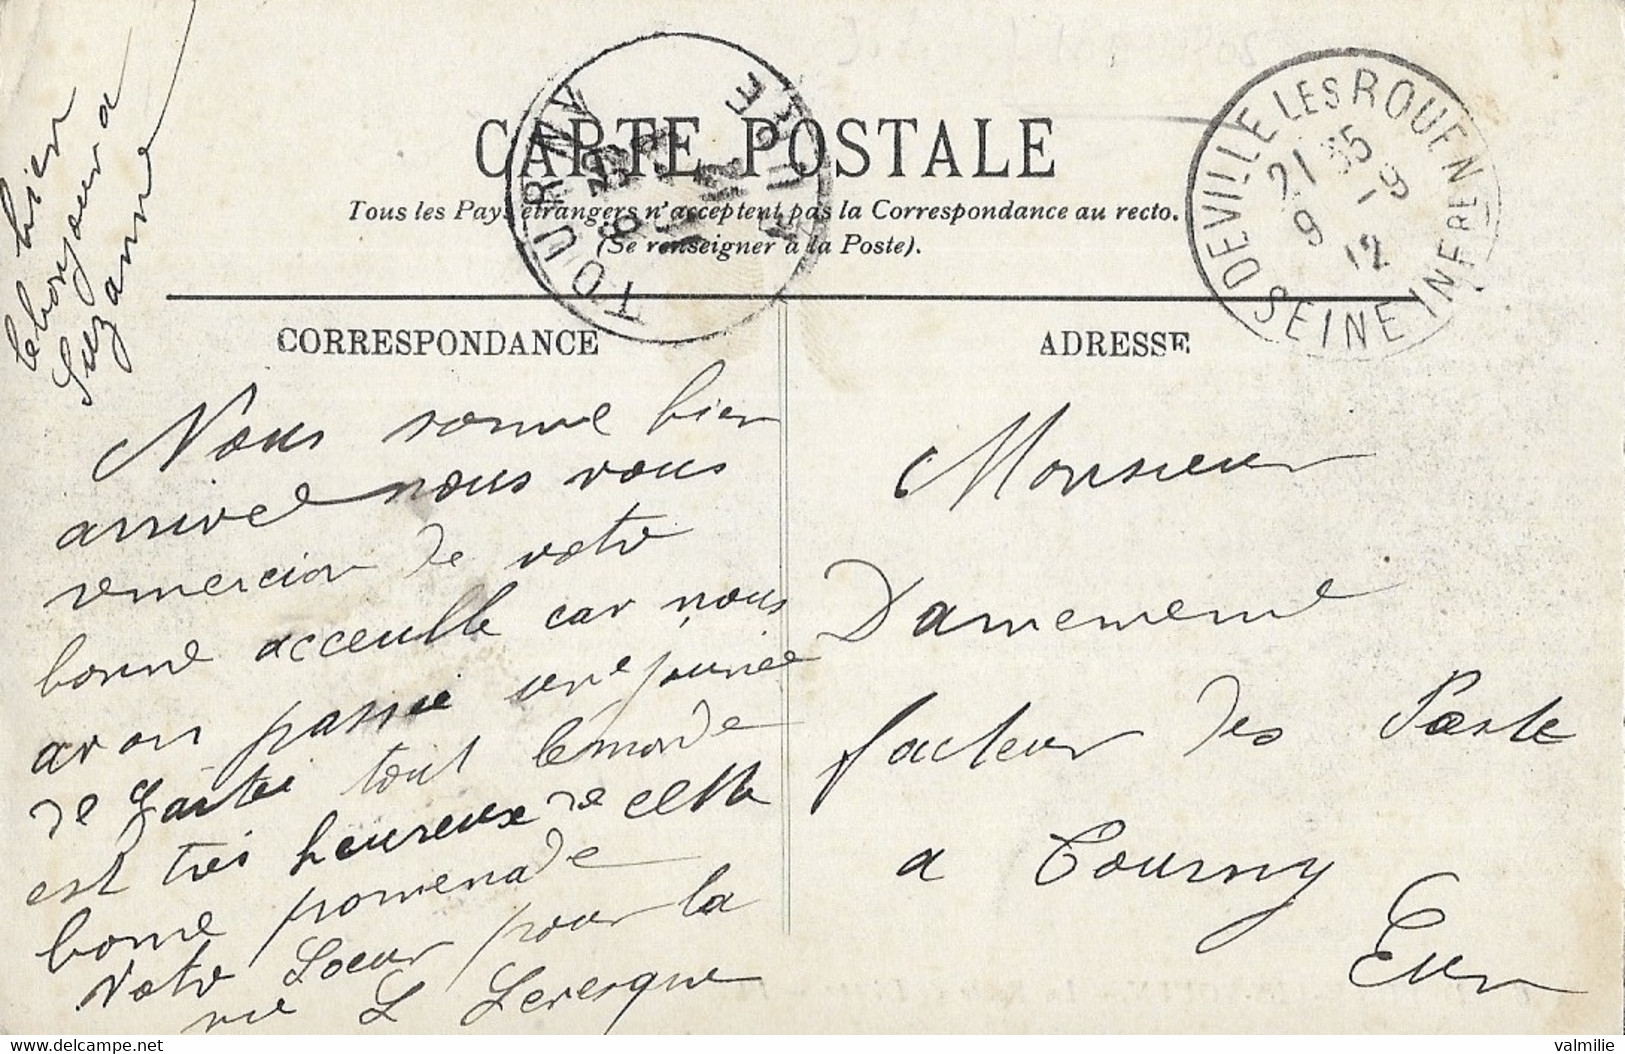 CARTE POSTALE
Tous les Pays étrangers n'acceptent pas la Correspondance au recto.
(Se renseigner à la Poste).
TOURNY
EURE
DEVILLE LES ROUEN
SEINE INFRE
21 35
9 - 9
12
CORRESPONDANCE
ADRESSE
le bonjour a
Suzanne
Nous somme bien
arrivee nous vous
remercion de votre
bonne acceuille car nous
avon passée une journée
de gaitée tout le monde
est très heureux de cette
bonne promenade
Votre Soeur pour la
vie L Leresque
Monsieur
Damemene
facteur des Poste
a Tourny
Eure
delcampe.net
valmilie